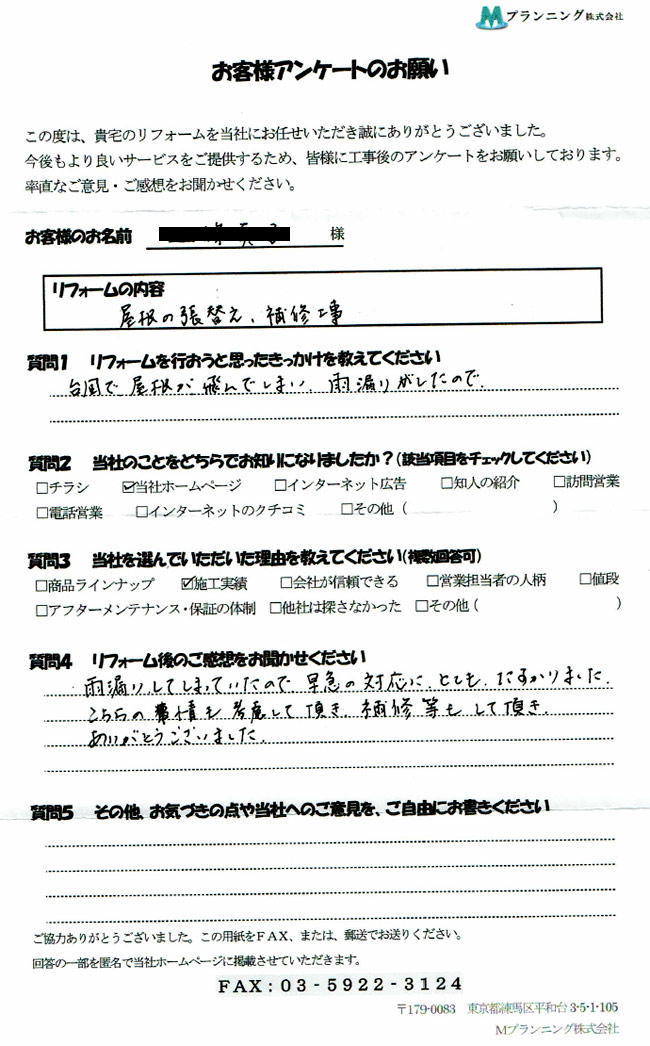 Mプランニング株式会社
お客様アンケートのお願い
この度は、貴宅のリフォームを当社にお任せいただき誠にありがとうございました。
今後もより良いサービスをご提供するため、皆様に工事後のアンケートをお願いしております。
率直なご意見・ご感想をお聞かせください。
お客様のお名前 様
リフォームの内容
屋根の張替え、補修工事
質問1 リフォームを行おうと思ったきっかけを教えてください
台風で屋根が飛んでしまい、雨漏りがしたので。
質問2 当社のことをどちらでお知りになりましたか？(該当項目をチェックしてください)
□チラシ ☑当社ホームページ □インターネット広告 □知人の紹介 □訪問営業
□電話営業 □インターネットのクチコミ □その他（ ）
質問3 当社を選んでいただいた理由を教えてください(複数回答可)
□商品ラインナップ ☑施工実績 □会社が信頼できる □営業担当者の人柄 □値段
□アフターメンテナンス・保証の体制 □他社は探さなかった □その他（ ）
質問4 リフォーム後のご感想をお聞かせください
雨漏りしてしまっていたので早急の対応に、とても、たすかりました。
こちらの事情も考慮して頂き、補修等もして頂き、
ありがとうございました。
質問5 その他、お気づきの点や当社へのご意見を、ご自由にお書きください
ご協力ありがとうございました。この用紙をFAX、または、郵送でお送りください。
回答の一部を匿名で当社ホームページに掲載させていただきます。
FAX：03-5922-3124
〒179-0083 東京都練馬区平和台3-5-1-105
Mプランニング株式会社